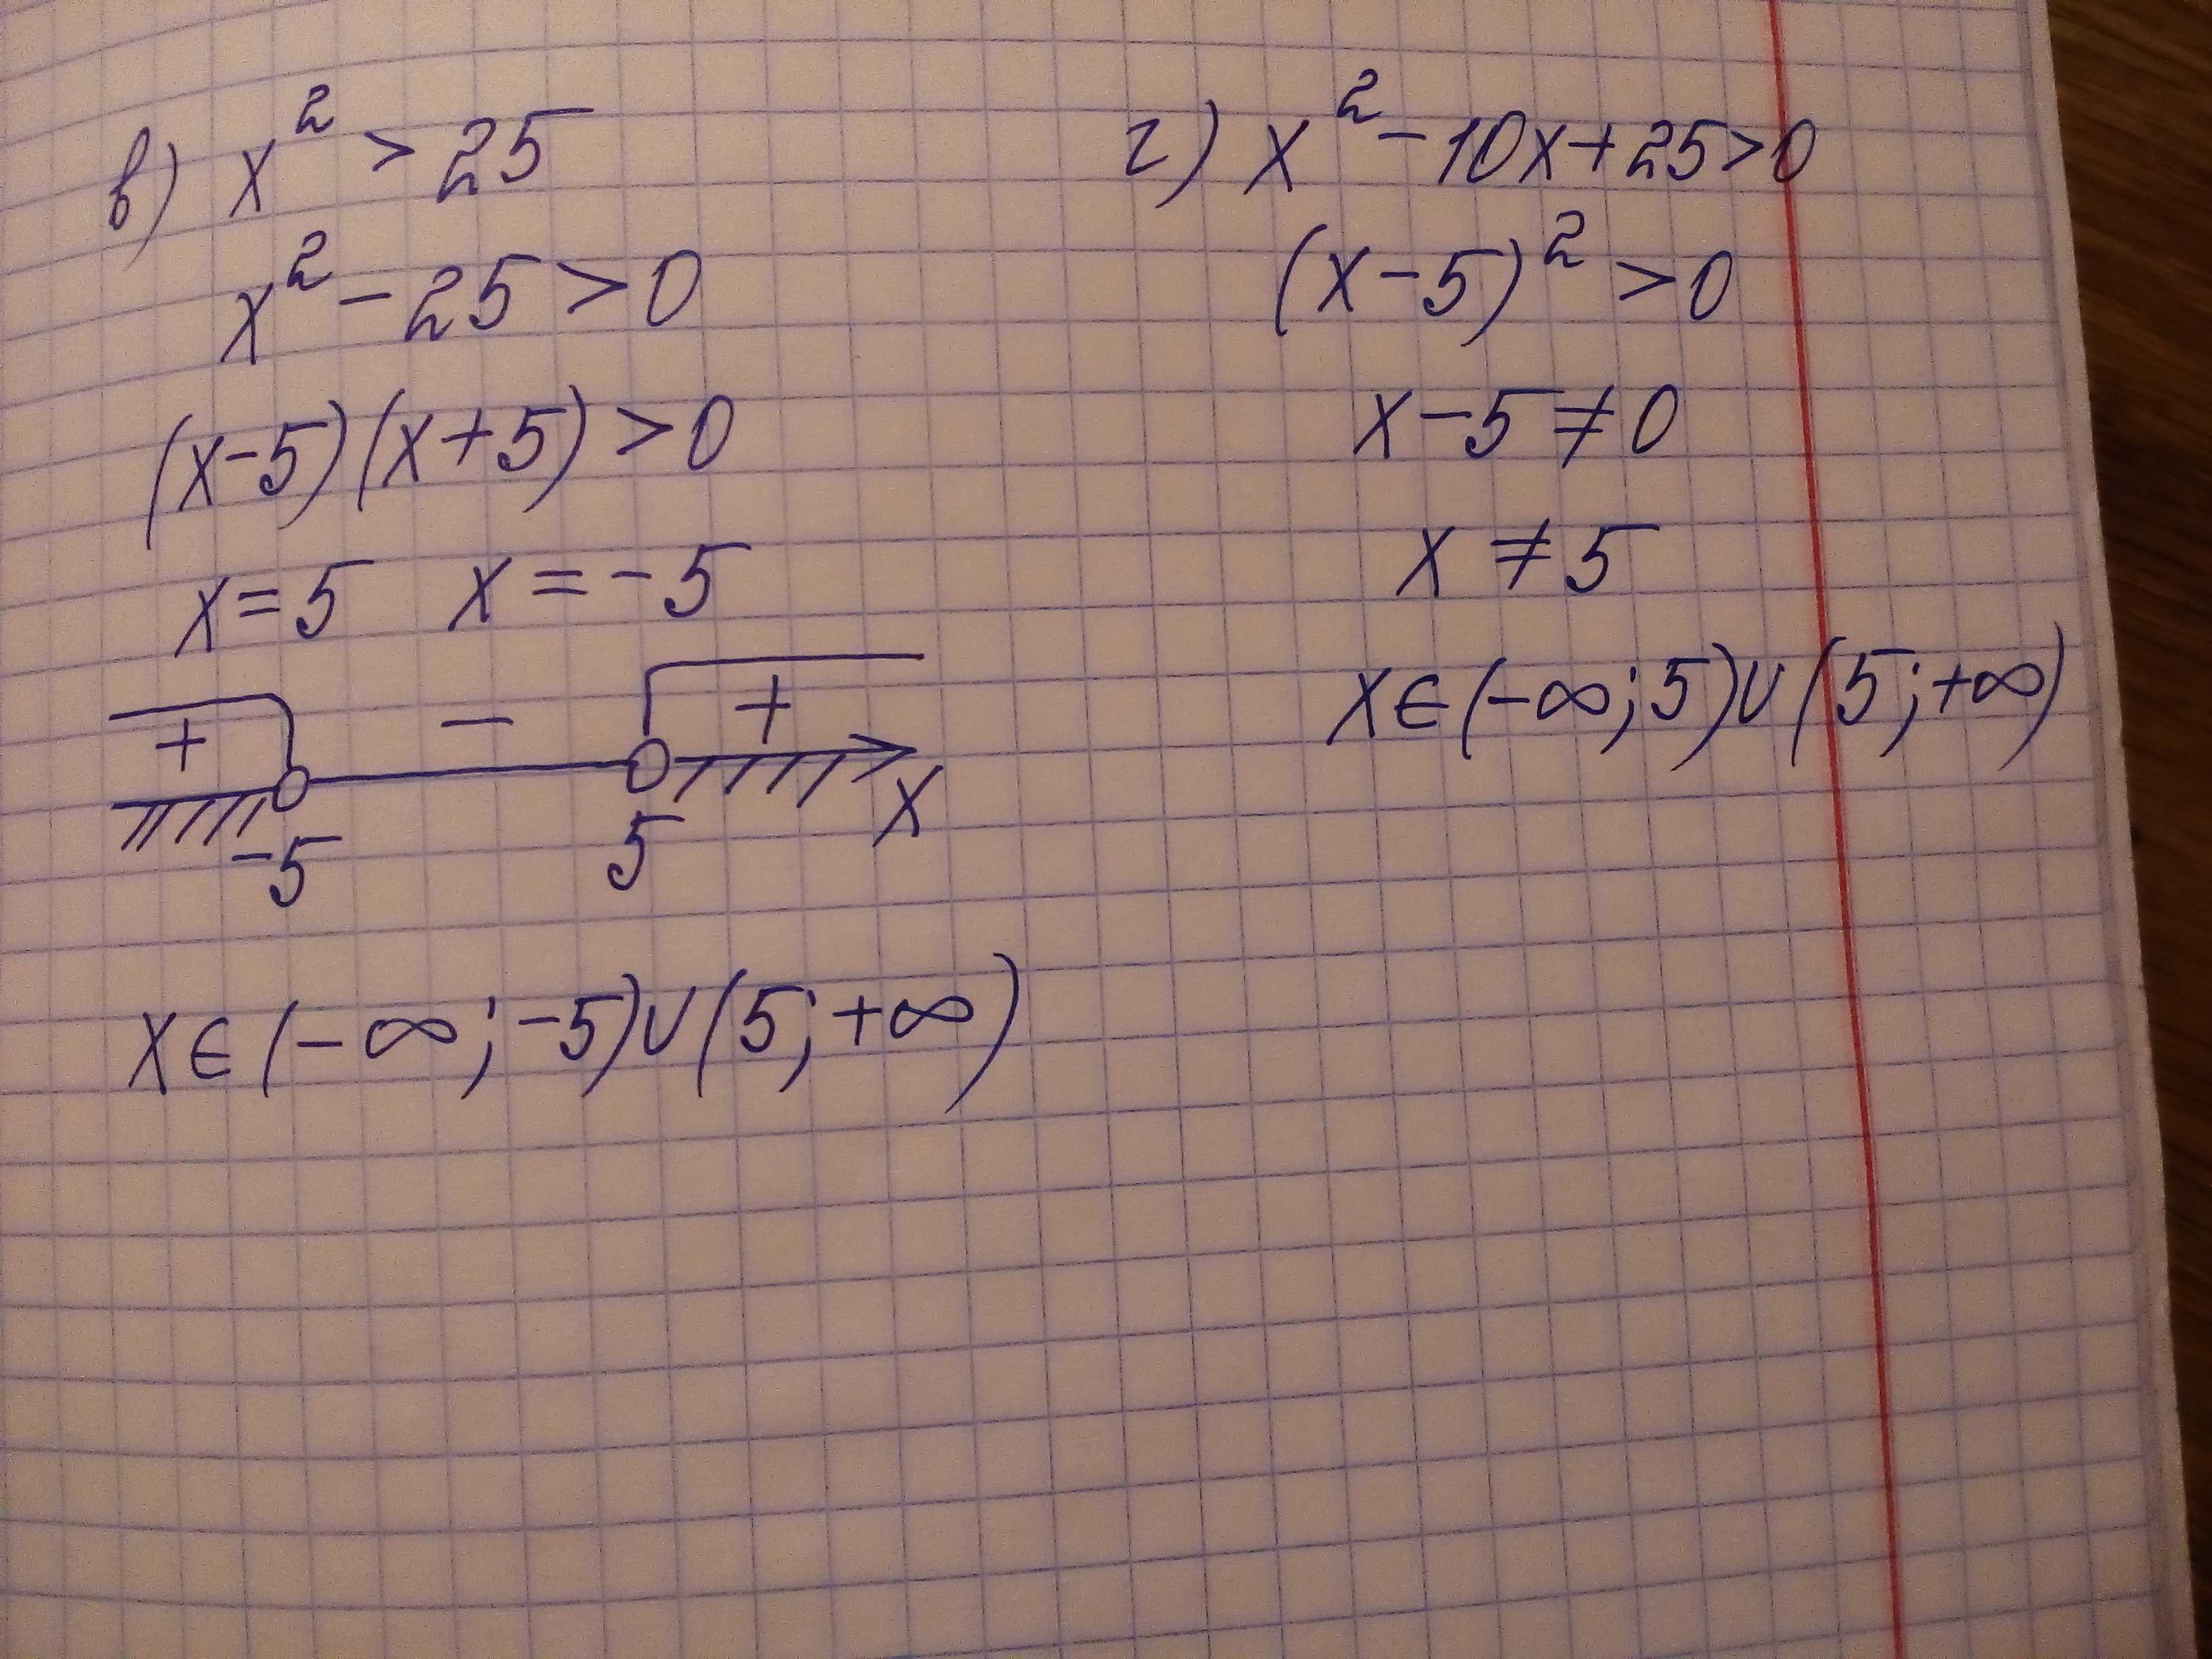 в) x² > 25
x² - 25 > 0
(x-5)(x+5) > 0
x = 5   x = -5
+   -   +
-5   5   x
x∈(-∞; -5)∪(5; +∞)
г) x² - 10x + 25 > 0
(x-5)² > 0
x - 5 ≠ 0
x ≠ 5
x∈(-∞; 5)∪(5; +∞)